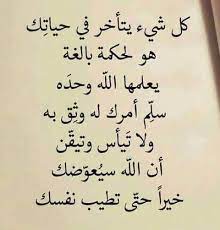 كل شيء يتأخر في حياتِك
هو لحكمة بالغة
يعلمها اللّه وحدَه
سلِّم أمرك له وثِق به
ولا تَيأس وتيقّن
أن اللّه سيُعوّضك
خيراً حتّى تطيب نفسك